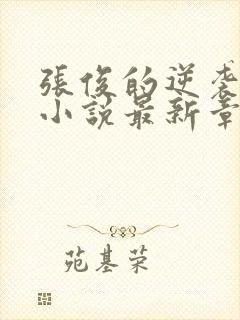 張俊的逆袭
小説最新章
苑基荣